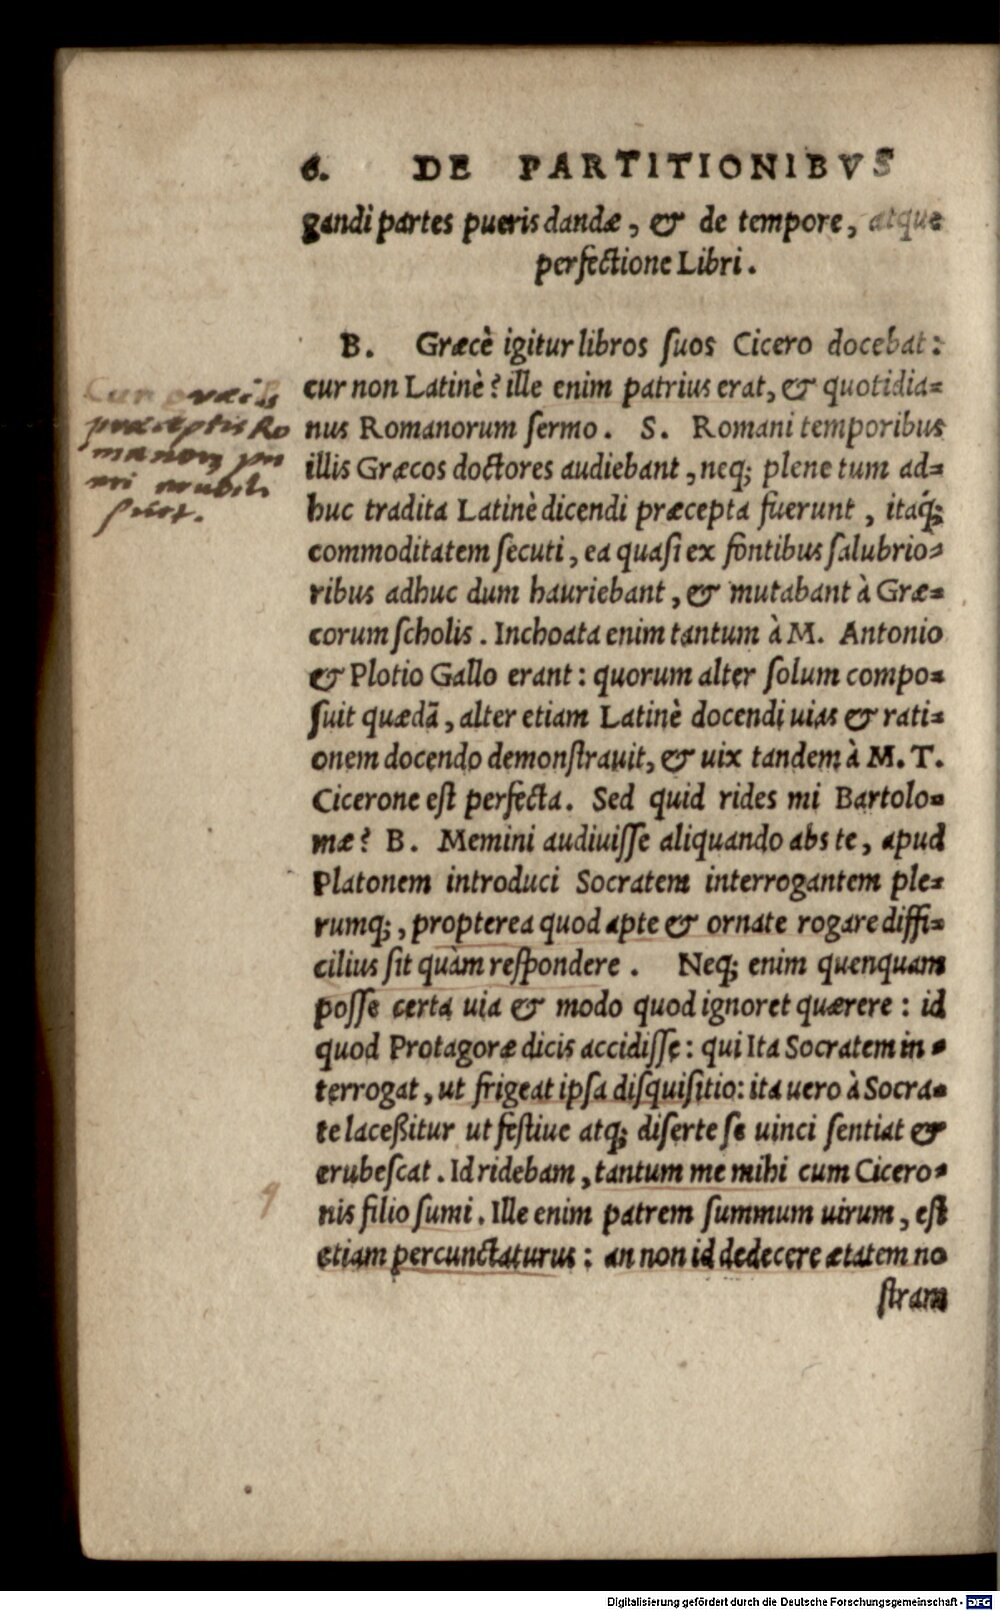 6. DE PARTITIONIBVS
gandi partes pueris dandæ, & de tempore, atque
perfectione Libri.
B. Græcè igitur libros suos Cicero docebat:
cur non Latinè? ille enim patrius erat, & quotidia=
nus Romanorum sermo. S. Romani temporibus
illis Græcos doctores audiebant, neq; plene tum ad=
huc tradita Latinè dicendi præcepta fuerunt, itaq́;
commoditatem secuti, ea quasi ex fontibus salubrio=
ribus adhuc dum hauriebant, & mutabant à Græ=
corum scholis. Inchoata enim tantum à M. Antonio
& Plotio Gallo erant: quorum alter solum compo=
suit quædã, alter etiam Latinè docendi uias & rati=
onem docendo demonstrauit, & uix tandem à M. T.
Cicerone est perfecta. Sed quid rides mi Bartolo=
mæ? B. Memini audiuisse aliquando abs te, apud
Platonem introduci Socratem interrogantem ple=
rumq;, propterea quod apte & ornate rogare diffi=
cilius sit quàm respondere. Neq; enim quenquam
posse certa uia & modo quod ignoret quærere: id
quod Protagoræ dicis accidisse: qui Ita Socratem in=
terrogat, ut frigeat ipsa disquisitio: ita uero à Socra=
te laceßitur ut festiue atq; diserte se uinci sentiat &
erubescat. Id ridebam, tantum me mihi cum Cicero=
nis filio sumi. Ille enim patrem summum uirum, est
etiam percunctaturus: an non id dedecere ætatem no
stram
Cur græcis
præceptis Ro
Digitalisierung gefördert durch die Deutsche Forschungsgemeinschaft - DFG